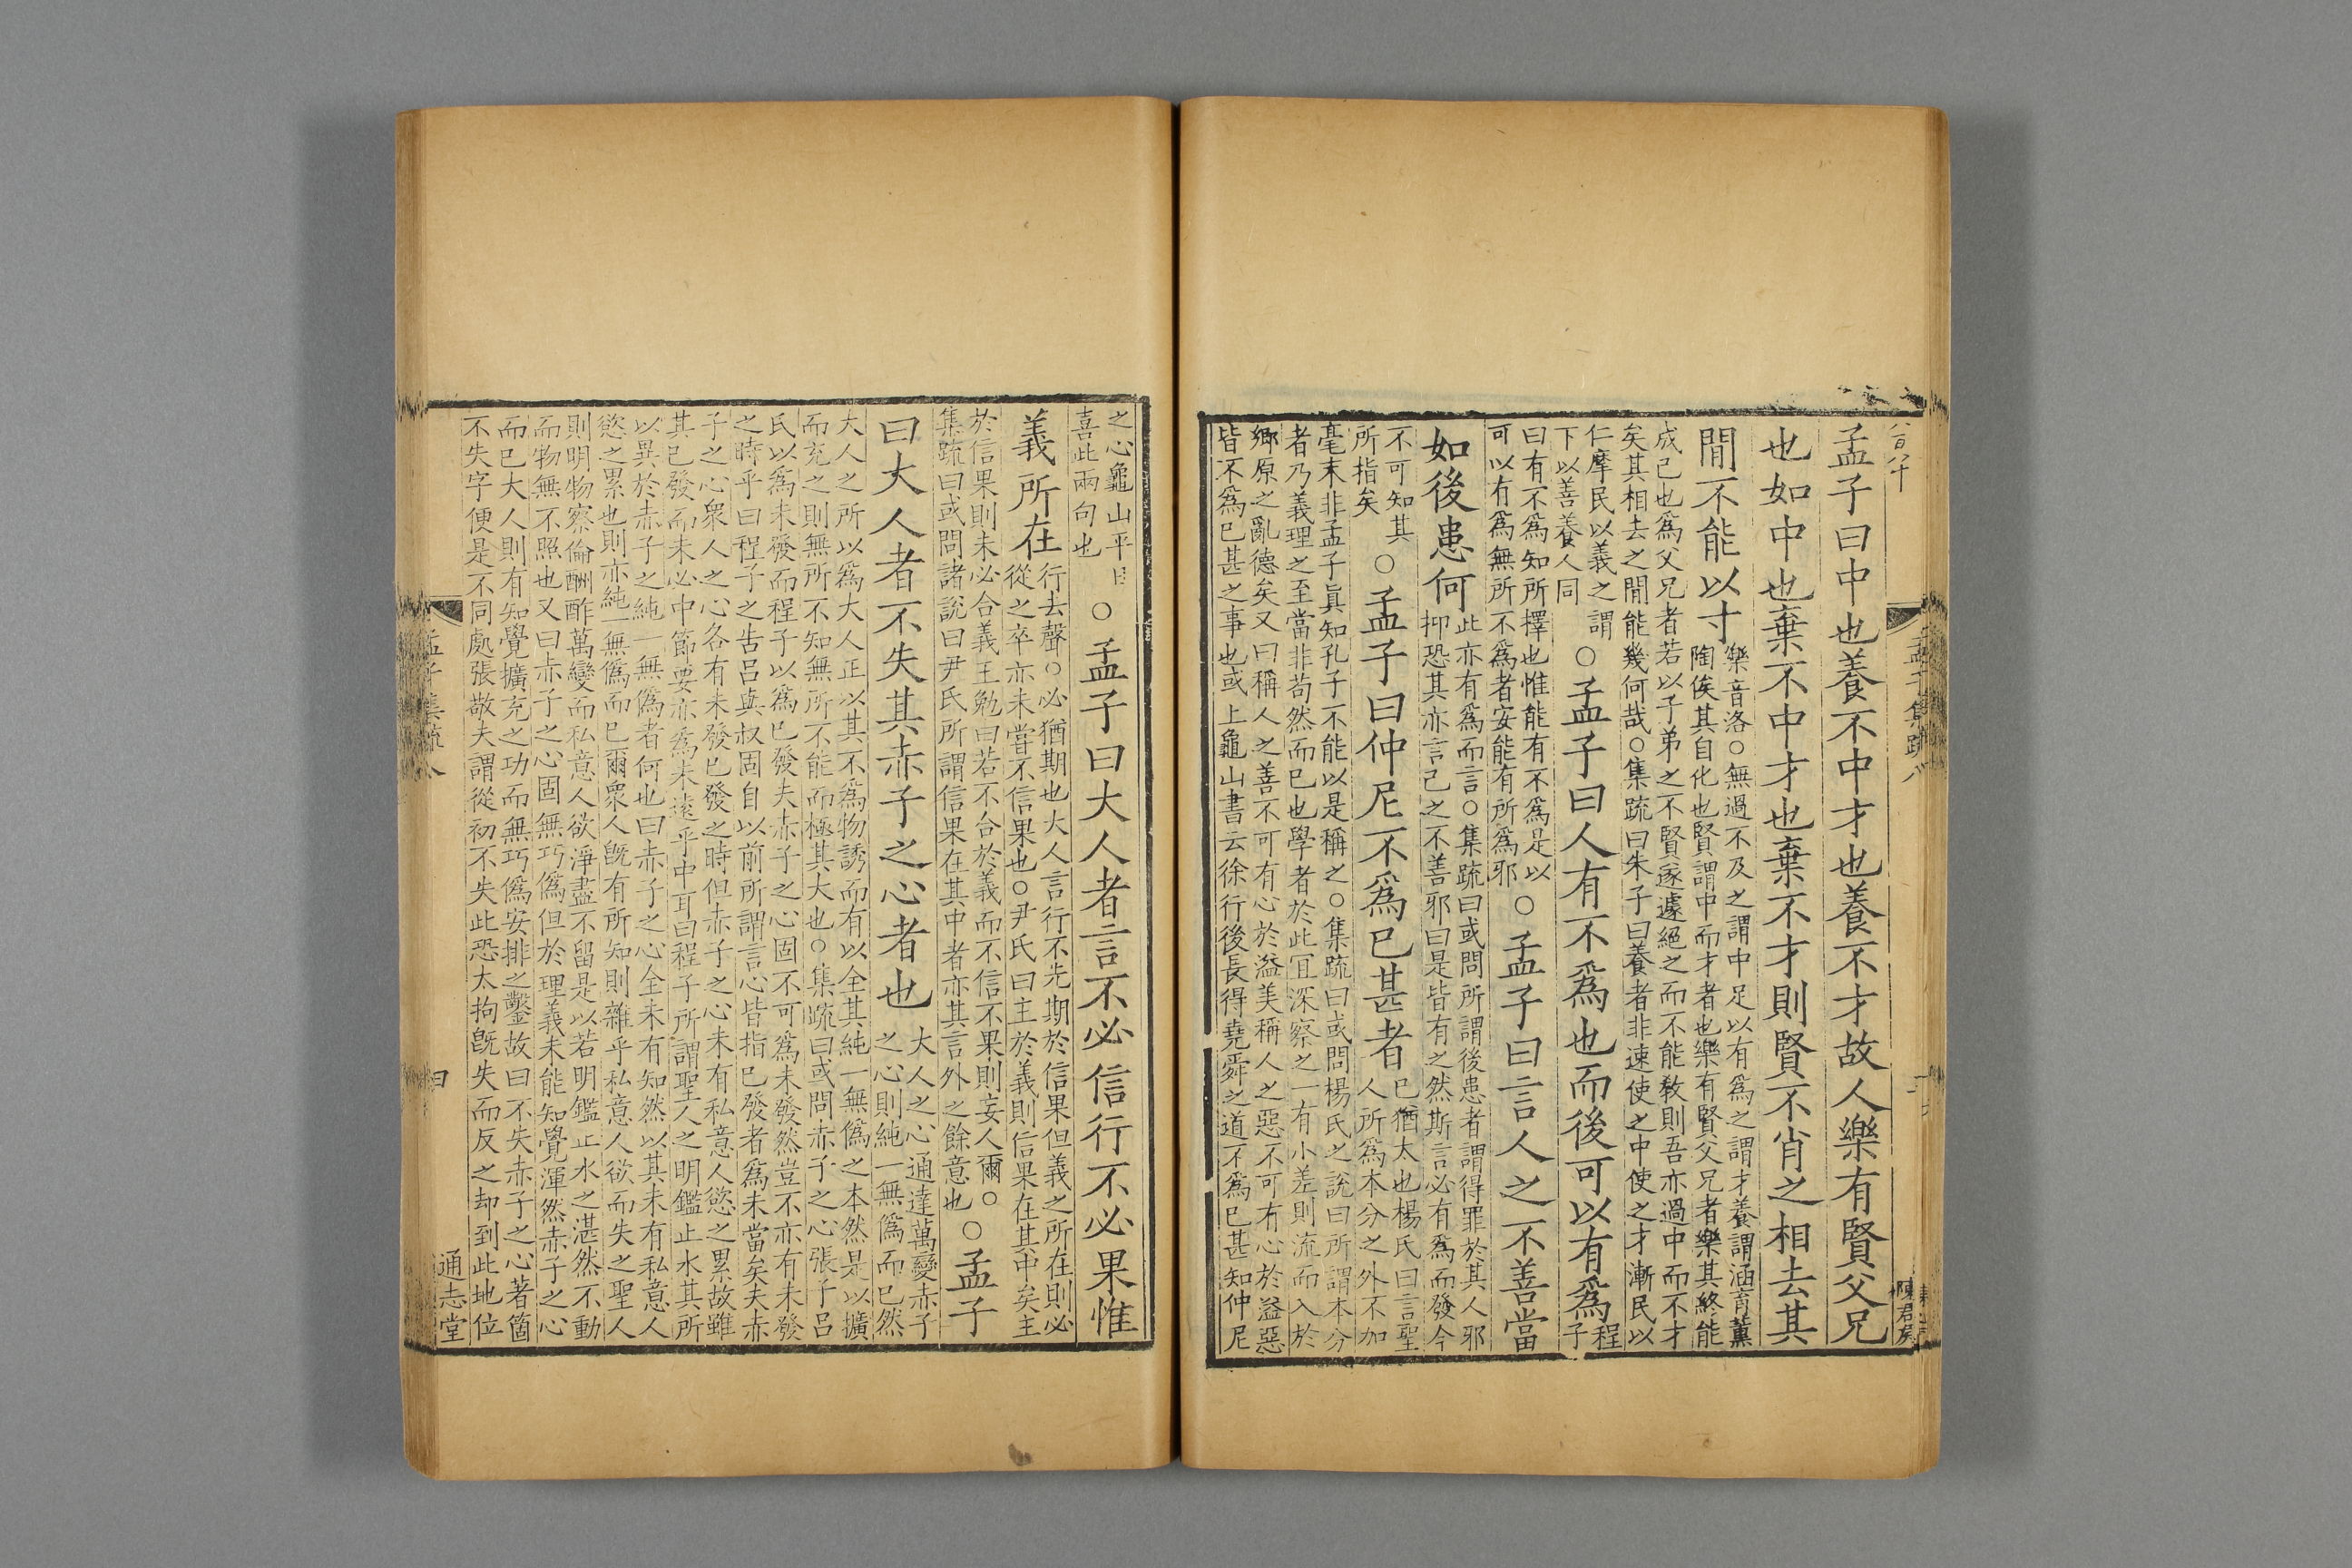 孟子曰中也養不中才也養不才故人樂有賢父兄
也如中也棄不中才也棄不才則賢不肖之相去其
閒不能以寸
樂音洛○無過不及之謂中足以有為之謂才養謂涵育薰
陶俟其自化也賢謂中而才者也樂有賢父兄者樂其終能
成己也爲父兄者若以子弟之不賢遂遽絕之而不能教則吾亦過中而不才
矣其相去之閒能幾何哉○集疏曰朱子曰養者非速使之中使之才漸民以
仁摩民以義之謂
下以善養人同
○孟子曰人有不爲也而後可以有爲
程
子
曰有不爲知所擇也惟能有不爲是以
可以有爲無所不爲者安能有所爲邪
○孟子曰言人之不善當
如後患何
此亦有爲而言○集疏曰或問所謂後患者謂得罪於其人邪
抑恐其亦言己之不善邪曰是皆有之然斯言必有爲而發今
不可知其
所指矣
○孟子曰仲尼不爲已甚者
已猶太也楊氏曰言聖
人所爲本分之外不加
毫末非孟子真知孔子不能以是稱之○集疏曰或問楊氏之說曰所謂本分
者乃義理之至當非苟然而已也學者於此宜深察之一有小差則流而入於
鄉原之亂德矣又曰稱人之善不可有心於溢美稱人之惡不可有心於溢惡
皆不爲已甚之事也或上龜山書云徐行後長得堯舜之道不爲已甚知仲尼
之心龜山平日
喜此兩句也
○孟子曰大人者言不必信行不必果惟
義所在
行去聲○必猶期也大人言行不先期於信果但義之所在則必
從之卒亦未嘗不信果也○尹氏曰主於義則信果在其中矣主
於信果則未必合義王勉曰若不合於義而不信不果則妄人爾○
集疏曰或問諸說曰尹氏所謂信果在其中者亦其言外之餘意也
○孟子
曰大人者不失其赤子之心者也
大人之心通達萬變赤子
之心則純一無僞而已然
大人之所以爲大人正以其不爲物誘而有以全其純一無僞之本然是以擴
而充之則無所不知無所不能而極其大也○集疏曰或問赤子之心張子呂
氏以爲未發而程子以爲已發夫赤子之心固不可爲未發然豈不亦有未發
之時乎曰程子之告呂與叔固自以前所謂言心皆指已發者爲未當矣夫赤
子之心衆人之心各有未發已發之時但赤子之心未有私意人慾之累故雖
其已發而未必中節要亦爲未遠乎中耳曰程子所謂聖人之明鑑止水其所
以異於赤子之純一無僞者何也曰赤子之心全未有知然以其未有私意人
慾之累也則亦純一無僞而已爾衆人旣有所知則雜乎私意人欲而失之聖人
則明物察倫酬酢萬變而私意人欲淨盡不留是以若明鑑止水之湛然不動
而物無不照也又曰赤子之心固無巧僞但於理義未能知覺渾然赤子之心
而已大人則有知覺擴充之功而無巧僞安排之鑿故曰不失赤子之心著箇
不失字便是不同處張敬夫謂從初不失此恐太拘旣失而反之却到此地位
孟子集疏八
四
通志堂